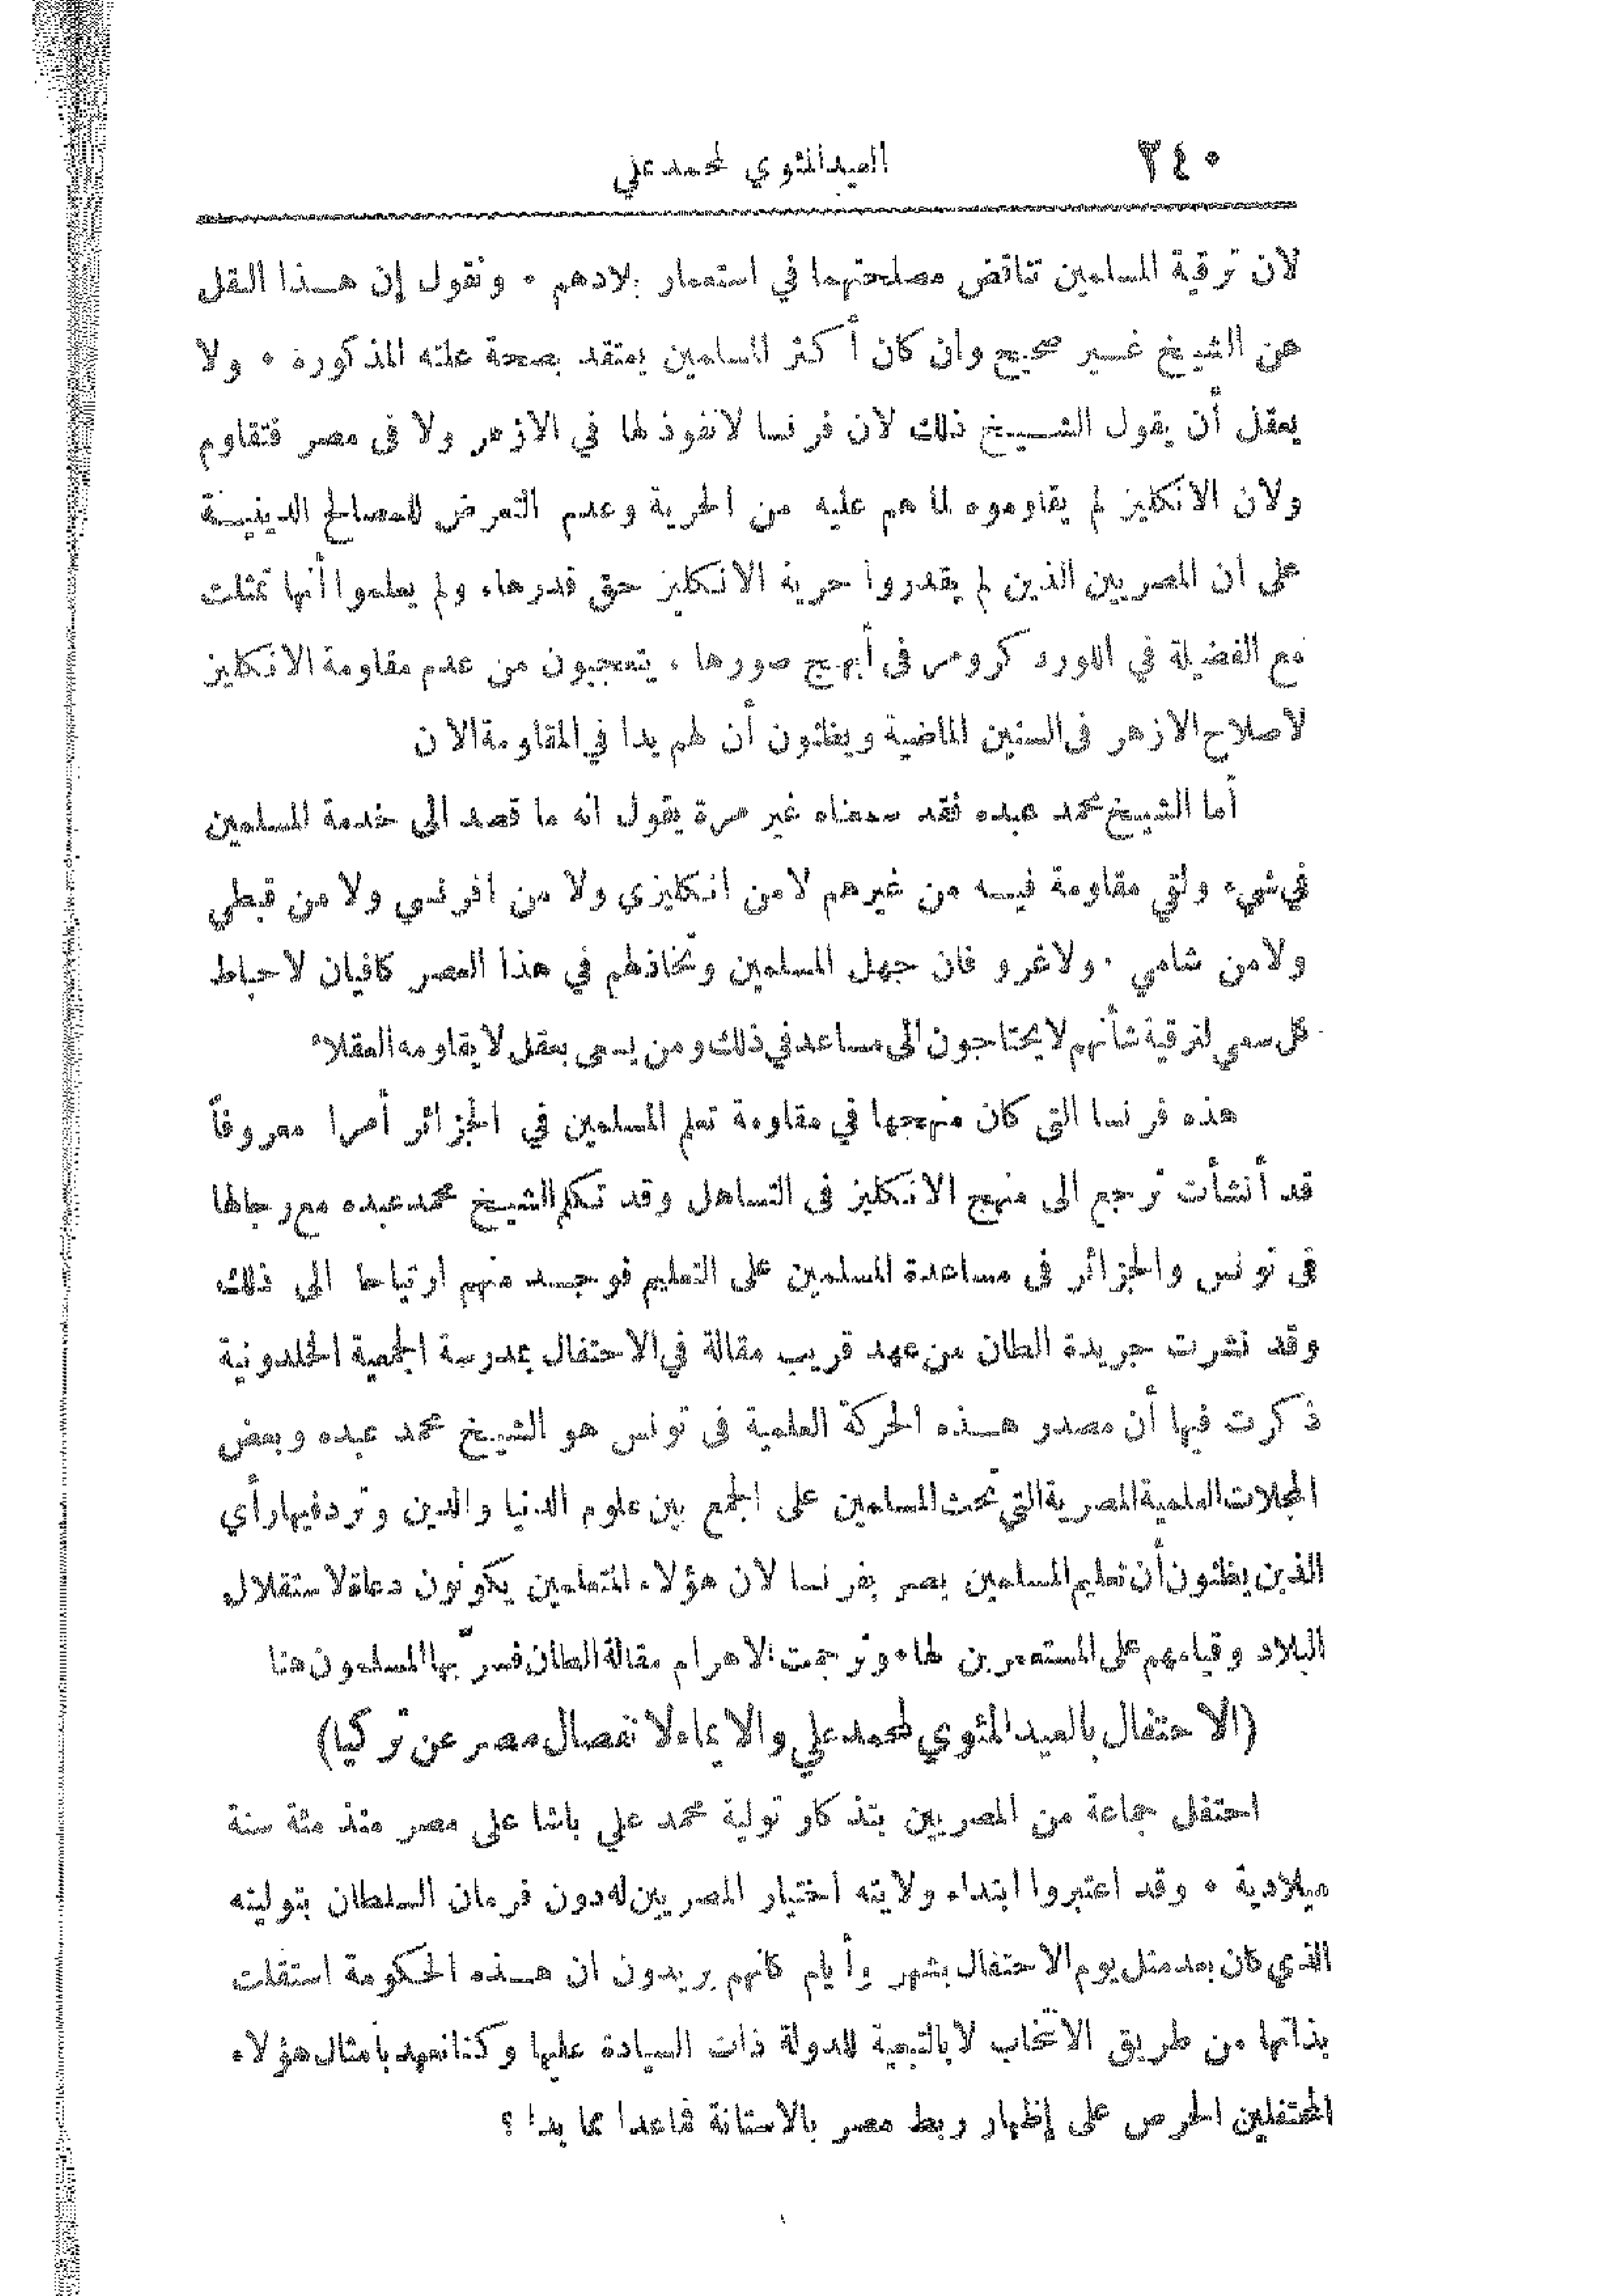 ٢٤٠ العيد المئوي لمحمد علي
لان ترقية المسلمين تناقض مصلحتهما في استعمار بلادهم . ونقول إن هـذا النقل
عن الشيخ غـير صحيح وان كان أكثر المسلمين يعتقد بصحة علته المذكورة . ولا
يعقل أن يقول الشـيخ ذلك لان فرنسا لانفوذ لها في الازهر ولا فى مصر فتقاوم
ولان الانكليز لم يقاوموه لما هم عليه من الحرية وعدم التعرض للمصالح الدينيـة
على ان المصريين الذين لم يقدروا حرية الانكليز حق قدرها، ولم يعلموا أنها تمثلت
مع الفضيلة في اللورد كرومر فى أبهج صورها ، يتعجبون من عدم مقاومة الانكليز
لاصلاح الازهر فى السنين الماضية ويظنون أن لهم يدا في المقاومة الآن
أما الشيخ محمد عبده فقد سمعناه غير مرة يقول انه ما قصد الى خدمة المسلمين
في شيء ولقي مقاومة فيـه من غيرهم لامن انكليزي ولا من افرنسي ولا من قبطي
ولامن شامي . ولاغرو فان جهل المسلمين وتخاذلهم في هذا العصر كافيان لاحباط
كل سعي لترقية شأنهم لا يحتاجون الى مساعد في ذلك ومن يسعى بعقل لا يقاومه العقلاء
هذه فرنسا التي كان منهجها في مقاومة تعلم المسلمين في الجزائر أمرا معروفاً
قد أنشأت ترجع الى منهج الانكليز فى التساهل وقد تكلم الشيخ محمد عبده مع رجالها
فى تونس والجزائر فى مساعدة المسلمين على التعليم فوجـد منهم ارتياحا الى ذلك
وقد نشرت جريدة الطان من عهد قريب مقالة في الاحتفال بمدرسة الجمعية الخلدونية
ذكرت فيها أن مصدر هـذه الحركة العلمية فى تونس هو الشيخ محمد عبده وبعض
المجلات العلمية المصرية التي تحث المسلمين على الجمع بين علوم الدنيا والدين وترد فيها رأي
الذين يظنون أن تعليم المسلمين يضر بفرنسا لان هؤلاء المتعلمين يكونون دعاة لاستقلال
البلاد وقيامهم على المستعمرين لها . وترجمت الاهرام مقالة الطان فسرّ بها المسلمون هنا
(الاحتفال بالعيد المئوي لمحمد علي والايماء لانفصال مصر عن تركيا)
احتفل جماعة من المصريين بتذكار تولية محمد علي باشا على مصر منذ مئة سنة
ميلادية . وقد اعتبروا ابتداء ولايته اختيار المصريين له دون فرمان السلطان بتوليته
الذي كان بعد مثل يوم الاحتفال بشهر وأيام كانهم يريدون ان هـذه الحكومة استقلت
بذاتها من طريق الانتخاب لا بالتبعية للدولة ذات السيادة عليها وكنا نعهد بأمثال هؤلاء
المحتفلين الحرص على إظهار ربط مصر بالاستانة فماعدا مما بدا ؟